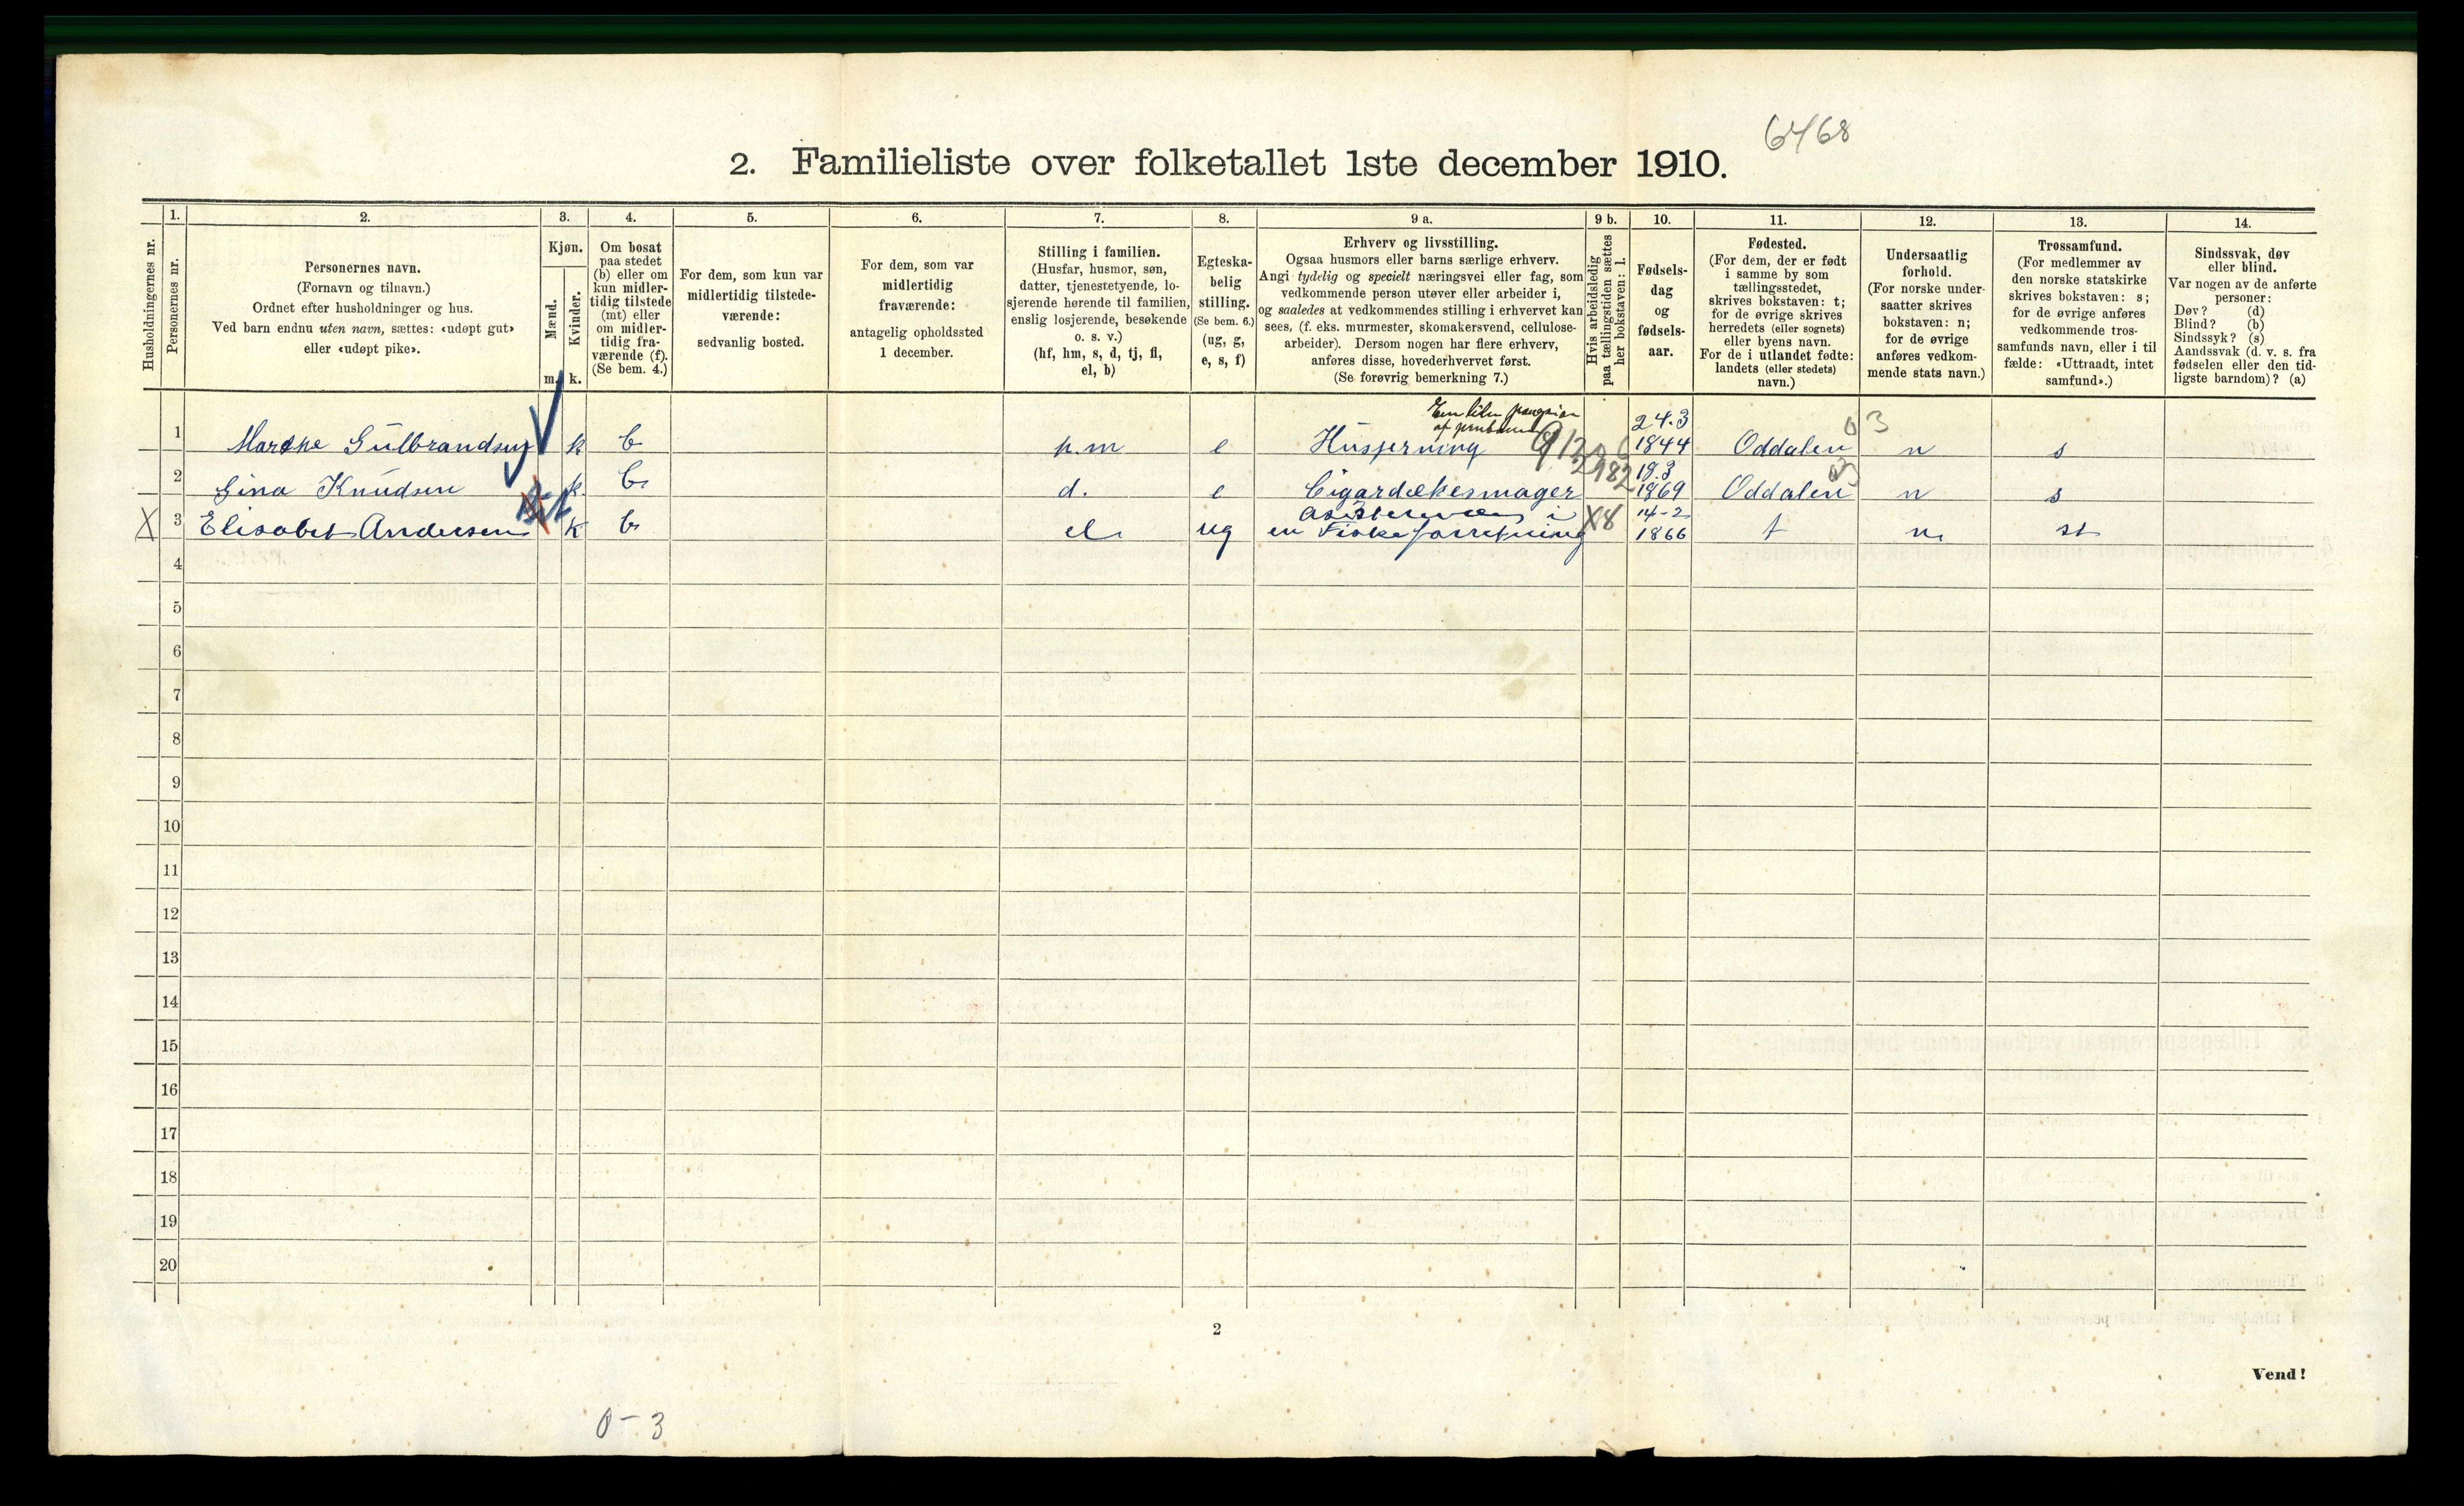 6468
2. Familieliste over folketallet 1ste december 1910.
1. 2. 3. 4. 5. 6. 7. 8. 9 a. 9 b. 10. 11. 12. 13. 14.
Husholdningernes nr.
Personernes nr.
Personernes navn.
(Fornavn og tilnavn.)
Ordnet efter husholdninger og hus.
Ved barn endnu uten navn, sættes: «udøpt gut»
eller «udøpt pike».
Kjøn.
Mænd.
Kvinder.
m. k.
Om bosat
paa stedet
(b) eller om
kun midler-
tidig tilstede
(mt) eller
om midler-
tidig fra-
værende (f).
(Se bem. 4.)
For dem, som kun var
midlertidig tilstede-
værende:
sedvanlig bosted.
For dem, som var
midlertidig
fraværende:
antagelig opholdssted
1 december.
Stilling i familien.
(Husfar, husmor, søn,
datter, tjenestetyende, lo-
sjerende hørende til familien,
enslig losjerende, besøkende
o. s. v.)
(hf, hm, s, d, tj, fl,
el, b)
Egteska-
belig
stilling.
(Se bem. 6.)
(ug, g,
e, s, f)
Erhverv og livsstilling.
Ogsaa husmors eller barns særlige erhverv.
Angi tydelig og specielt næringsvei eller fag, som
vedkommende person utøver eller arbeider i,
og saaledes at vedkommendes stilling i erhvervet kan
sees, (f. eks. murmester, skomakersvend, cellulose-
arbeider). Dersom nogen har flere erhverv,
anføres disse, hovederhvervet først.
(Se forøvrig bemerkning 7.)
Hvis arbeidsledig
paa tællingstiden sættes
her bokstaven: l.
Fødsels-
dag
og
fødsels-
aar.
Fødested.
(For dem, der er født
i samme by som
tællingsstedet,
skrives bokstaven: t;
for de øvrige skrives
herredets (eller sognets)
eller byens navn.
For de i utlandet fødte:
landets (eller stedets)
navn.)
Undersaatlig
forhold.
(For norske under-
saatter skrives
bokstaven: n;
for de øvrige
anføres vedkom-
mende stats navn.)
Trossamfund.
(For medlemmer av
den norske statskirke
skrives bokstaven: s;
for de øvrige anføres
vedkommende tros-
samfunds navn, eller i til
fælde: «Uttraadt, intet
samfund».)
Sindssvak, døv
eller blind.
Var nogen av de anførte
personer:
Døv? (d)
Blind? (b)
Sindssyk? (s)
Aandssvak (d. v. s. fra
fødselen eller den tid-
ligste barndom)? (a)
En liten
24.3 3
1 Marthe Gulbrandsen k b h.m e Husgerning 1844 Oddalen n s
2982 18.3
2 Gina Knudsen k. b. d. e Cigardekesmager 1869 Oddalen n s
i 14-2
X 3 Elisabet Andersen k b el. ug en Fiskeforretning X8 1866 t n. st
4
5
6
7
8
9
10
11
12
13
14
15
16
17
18
19
20
2
Vend!
0-3